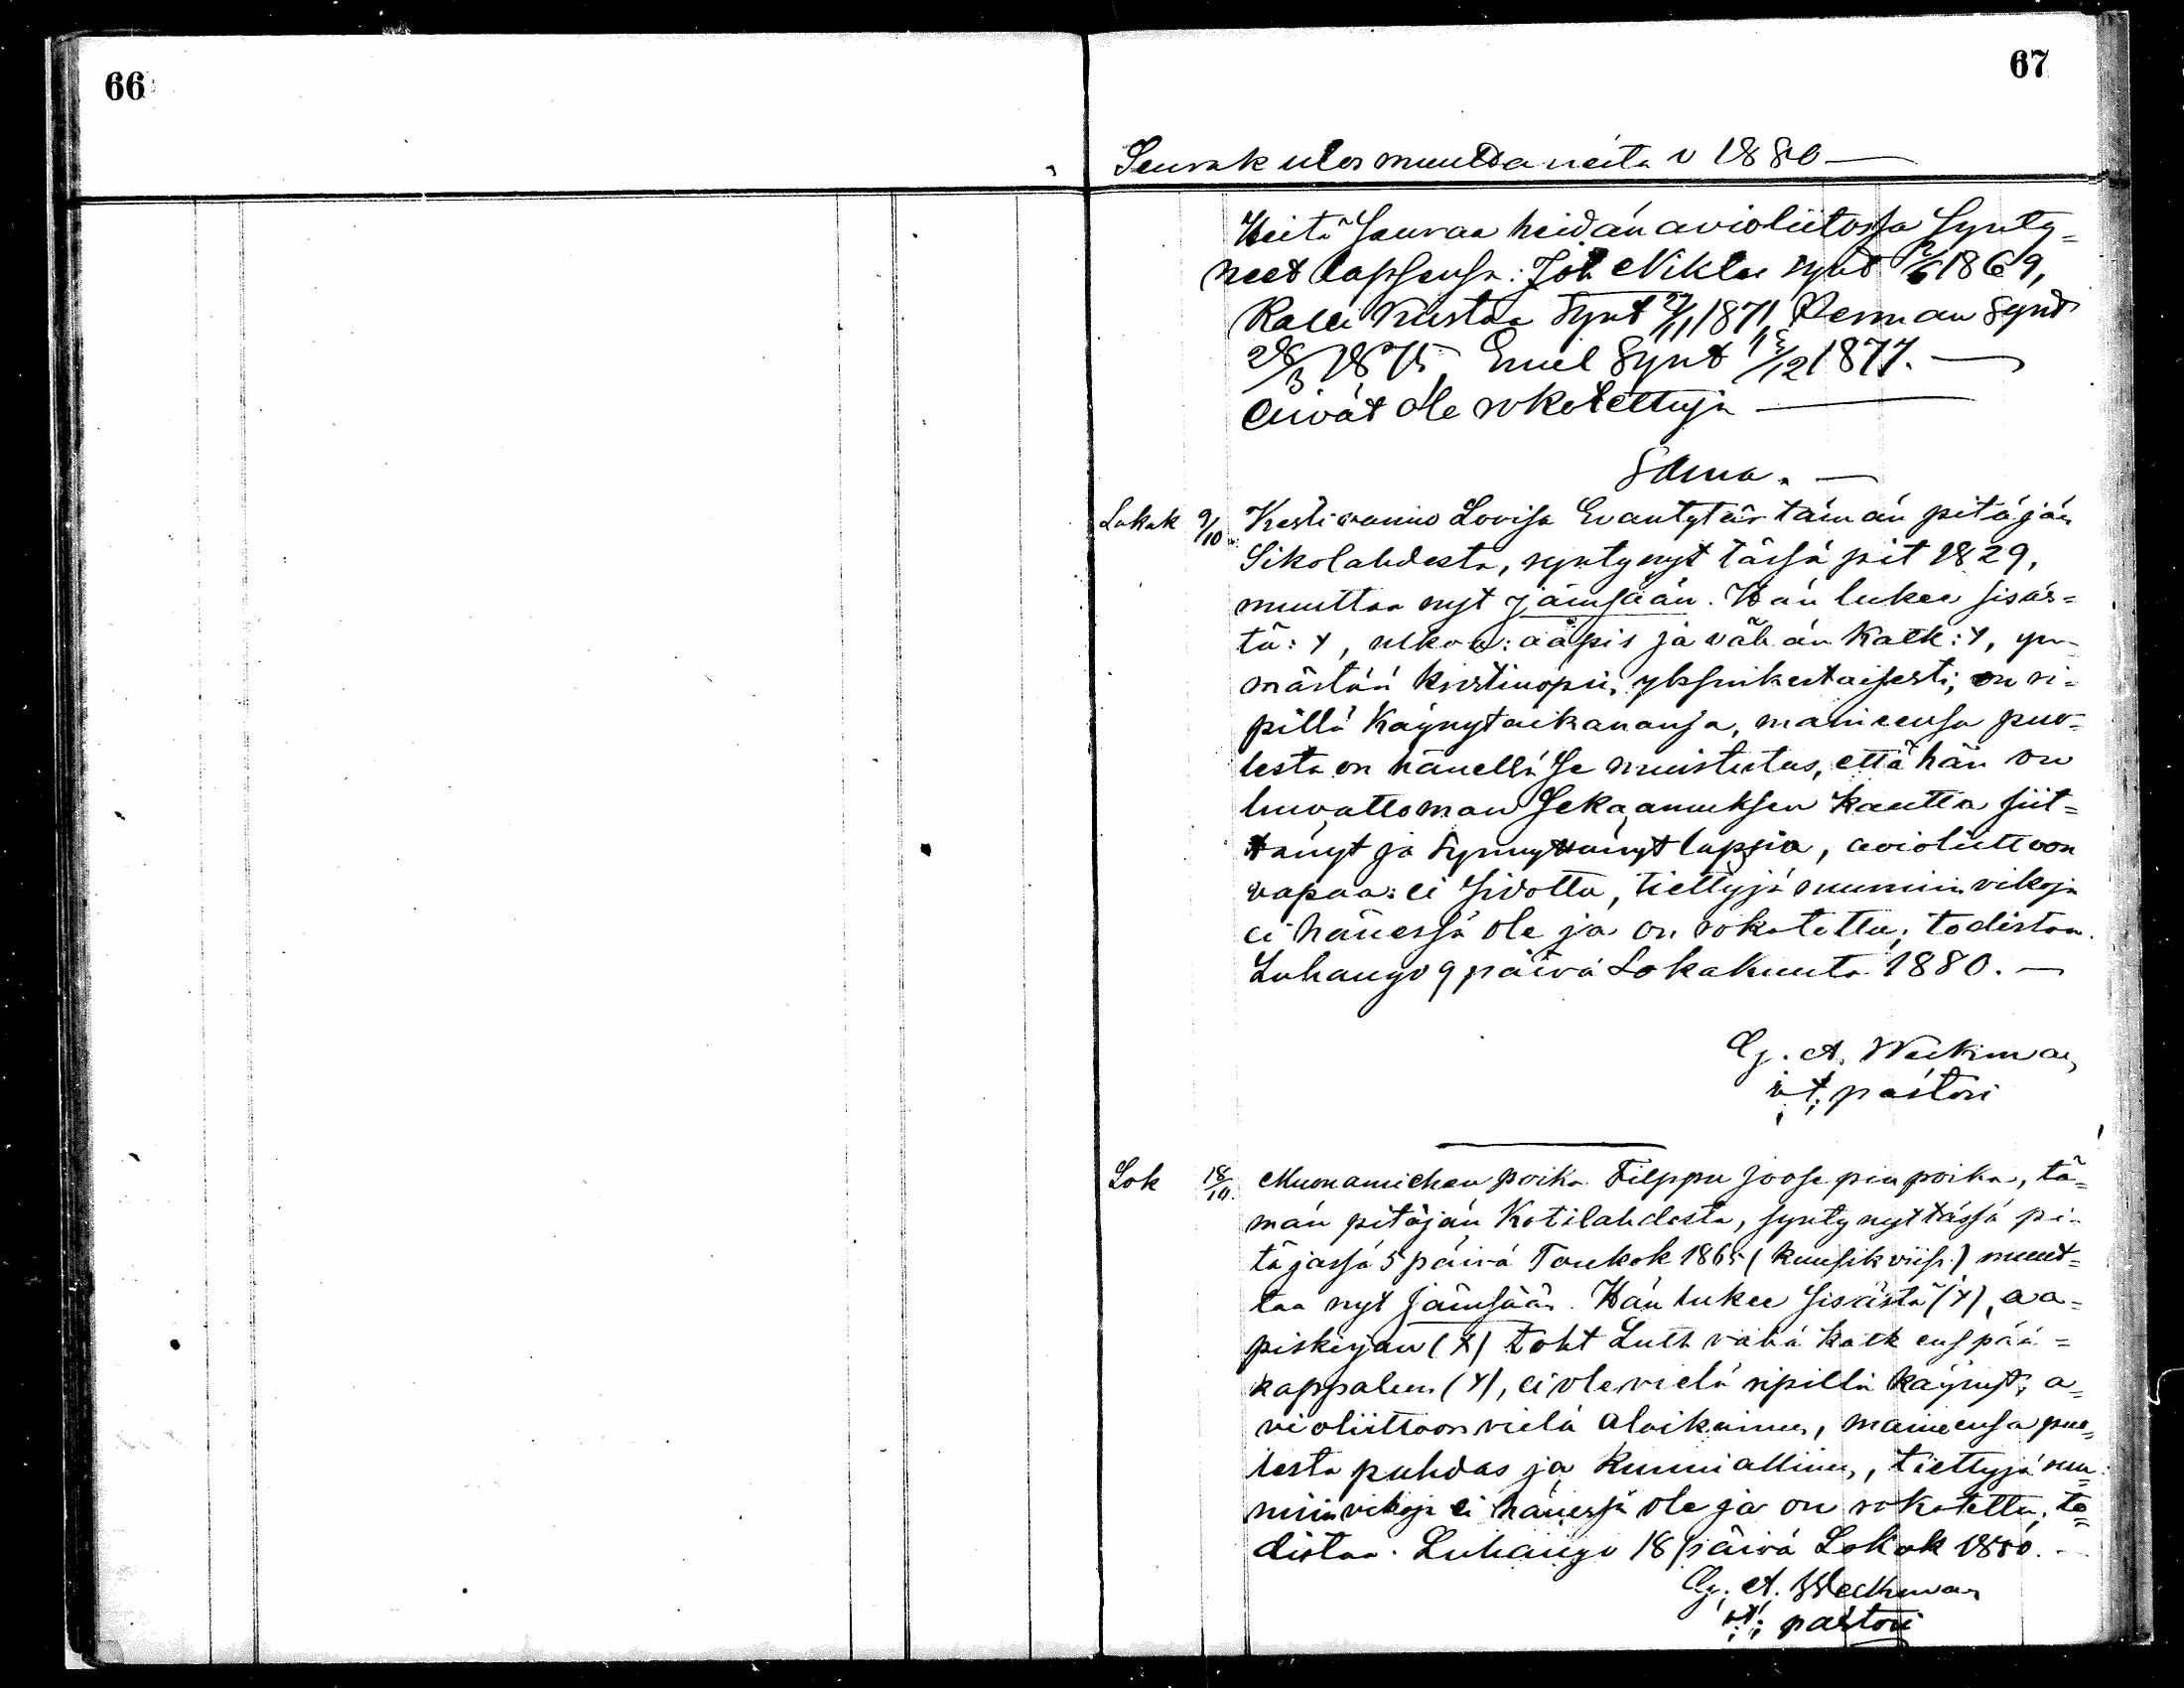 66
67
Seurak ulos muuttaneita v 1880
Heitä seuraa heidän avioliitossa synty=
neet lapsensa: Joh Niklas synt 1869,
Kalle Kustaa synt 27/11 1871, Herman synt
28/3 1875 Emel synt 13/12 1877.
Eivät ole rokotettuja
Sama.
Lokak 9/10 Kestivaimo Lovisa Evantytär tämän pitäjän
Sikolahdesta, syntynyt tässä pit 1829,
muuttaa nyt Jämsään. Hän lukee sisäs=
tä: Y, ulkoa: aapis ja vähän Katk: Y, ym-
märtää kristinopin yksinkertaisesti, on ri=
pillä käynyt aikanansa, maineensa puo=
lesta on hänellä se muistutus, että hän on
luvattoman sekaannuksen kautta siit=
tänyt ja synnyttänyt lapsia, avioliittoon
vapaa: ei sidottu, tiettyjä ruumiin vikoja
ei hänessä ole ja on rokotettu; todistaa.
Luhango 9 päivä Lokakuuta 1880.
G. A. Weckman
v. t. pastori
Lok 18/10. Muonamiehen poika Filppu Joosepinpoika, tä=
män pitäjän Kotilahdesta, syntynyt tässä pi=
täjässä 5 päivä Toukok 1865 (kuusik viisi) muut=
taa nyt Jämsään. Hän lukee sisästä (Y), aa=
piskirjan (X) Toht Luth vähä katk ens pää=
kappaleen (Y), ei ole vielä ripillä käynyt, a=
violiittoon vielä alaikäinen, maineensa puo=
lesta puhdas ja kunniallinen, tiettyjä ruu=
miin vikoja ei hänessä ole ja on rokotettu, to=
distaa. Luhango 18 päivä Lokak 1880.
G. A. Weckman
v. t. pastori